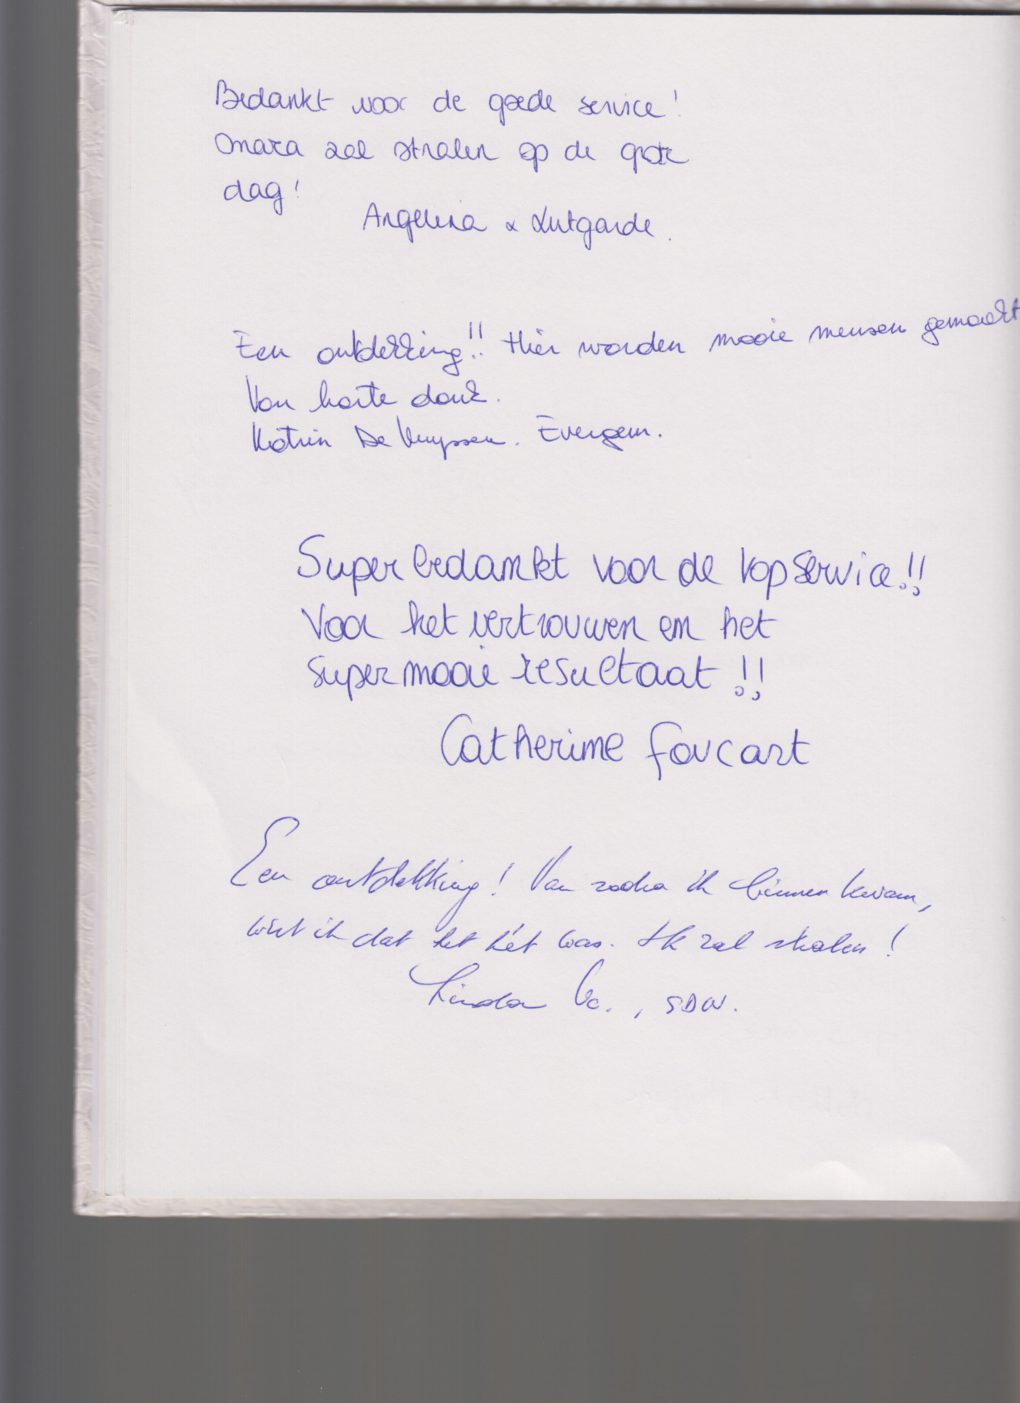 Bedankt voor de goede service!
Omara zal stralen op de grote
dag!
Angelina & Lutgarde.
Een ontdekking!! Hier worden mooie mensen gemaakt
Van harte dank.
Katrin De Kuyssen. Evergem.
Super bedankt voor de topservice!!
Voor het vertrouwen en het
supermooie resultaat!!
Catherine Foucart
Een ontdekking! Van zodra ik binnen kwam,
wist ik dat het hét was. Ik zal stralen!
Linda Vc., SDW.